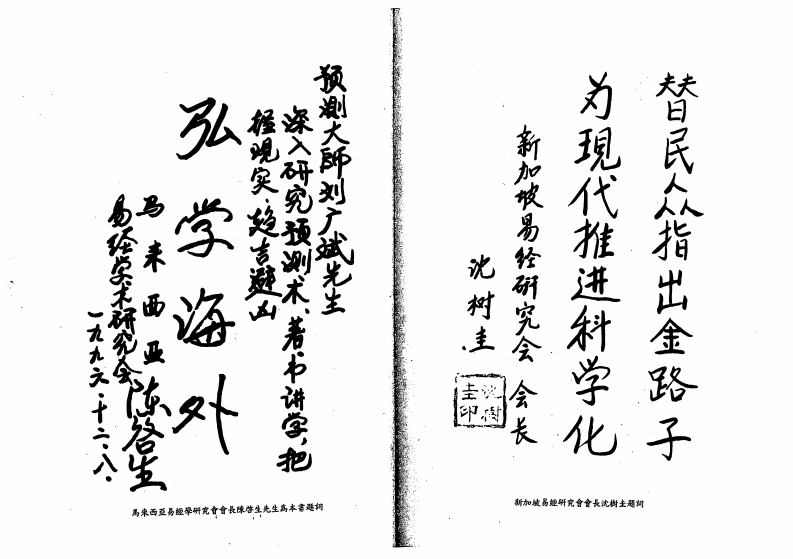 替民众指出金路子
为現代推进科学化
新加坡易经研究会 会长
沈树圭
沈樹
圭印
新加坡易經研究會會長沈樹圭題詞
预測大師刘广斌先生
深入研究预測术、著书讲学、把
握現实、趋吉避凶
弘学海外
马来西亚
易经学术研究会陈启生
一九九六·十二·八·
馬來西亞易經學研究會會長陳啓生先生爲本書題詞